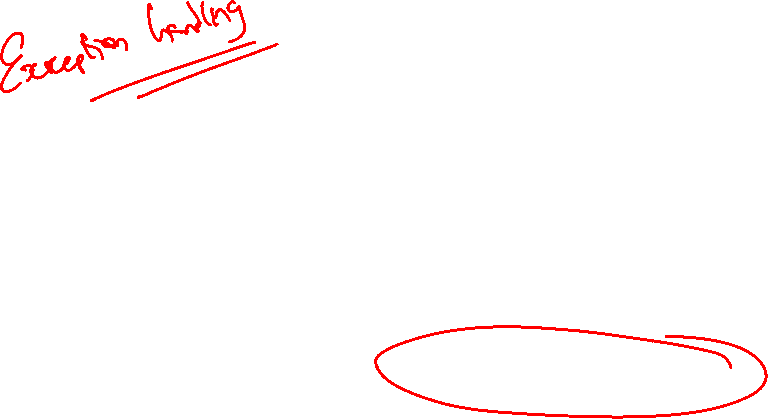 Exception handling